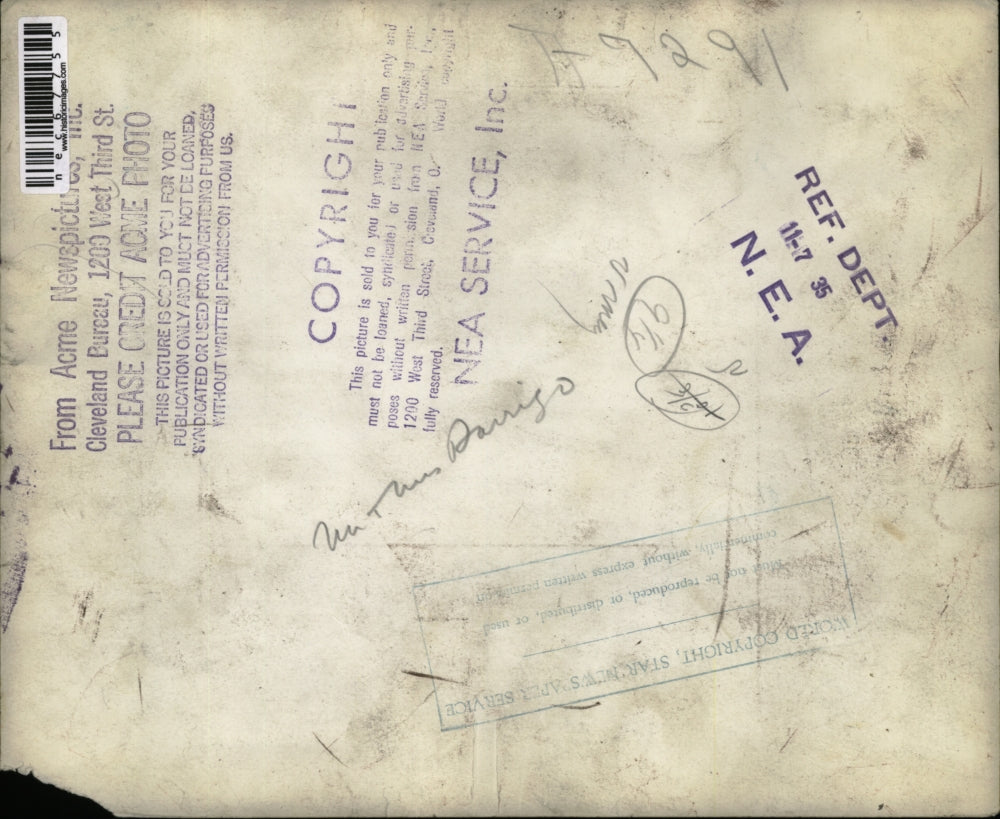 nec67755
www.historicimages.com
From Acme Newspictures, Inc.
Cleveland Bureau, 1200 West Third St.
PLEASE CREDIT ACME PHOTO
THIS PICTURE IS SOLD TO YOU FOR YOUR
PUBLICATION ONLY AND MUST NOT BE LOANED,
SYNDICATED OR USED FOR ADVERTISING PURPOSES
WITHOUT WRITTEN PERMISSION FROM US.
COPYRIGHT
This picture is sold to you for your publication only and
must not be loaned, syndicated or used for advertising pur-
poses without written permission from NEA Service, Inc.,
1200 West Third Street, Cleveland, O. World copyright
fully reserved.
NEA SERVICE, Inc.
REF. DEPT.
11-7 35
N. E. A.
9 1/2
Mr + Mrs Darrigo
WORLD COPYRIGHT, STAR NEWSPAPER SERVICE
Must not be reproduced, or distributed, or used
commercially, without express written permission